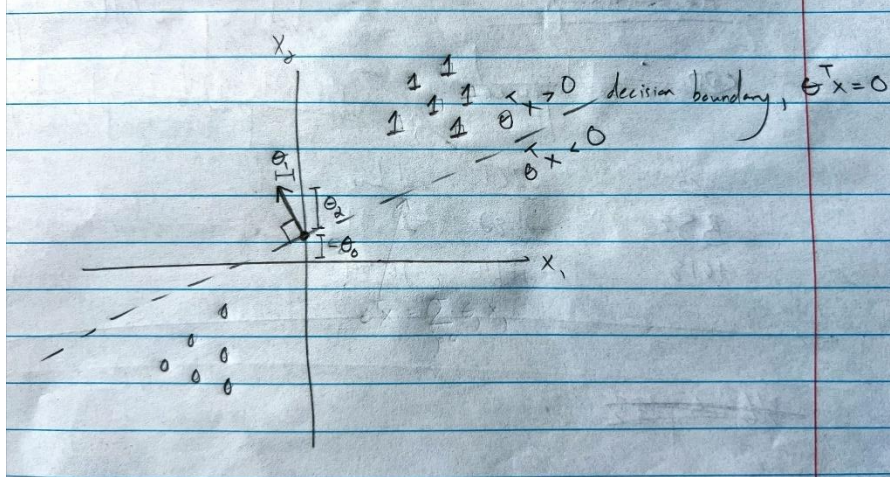 X₂
1
1 1 1
1 1
θᵀx > 0
decision boundary, θᵀx = 0
θᵀx < 0
θ₁
θ₂
-θ₀
x₁
0
0
0 0
0 0